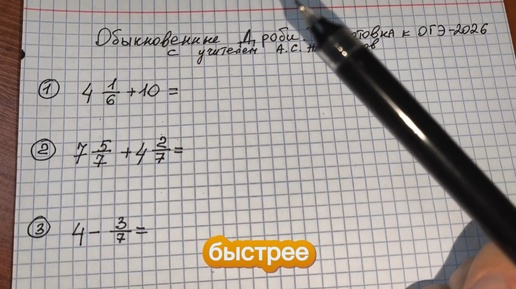 Обыкновенные Дроби. к ОГЭ-2026
с учителем А.С.
① 4 1/6 + 10 =
② 7 5/7 + 4 2/7 =
③ 4 - 3/7 =
быстрее